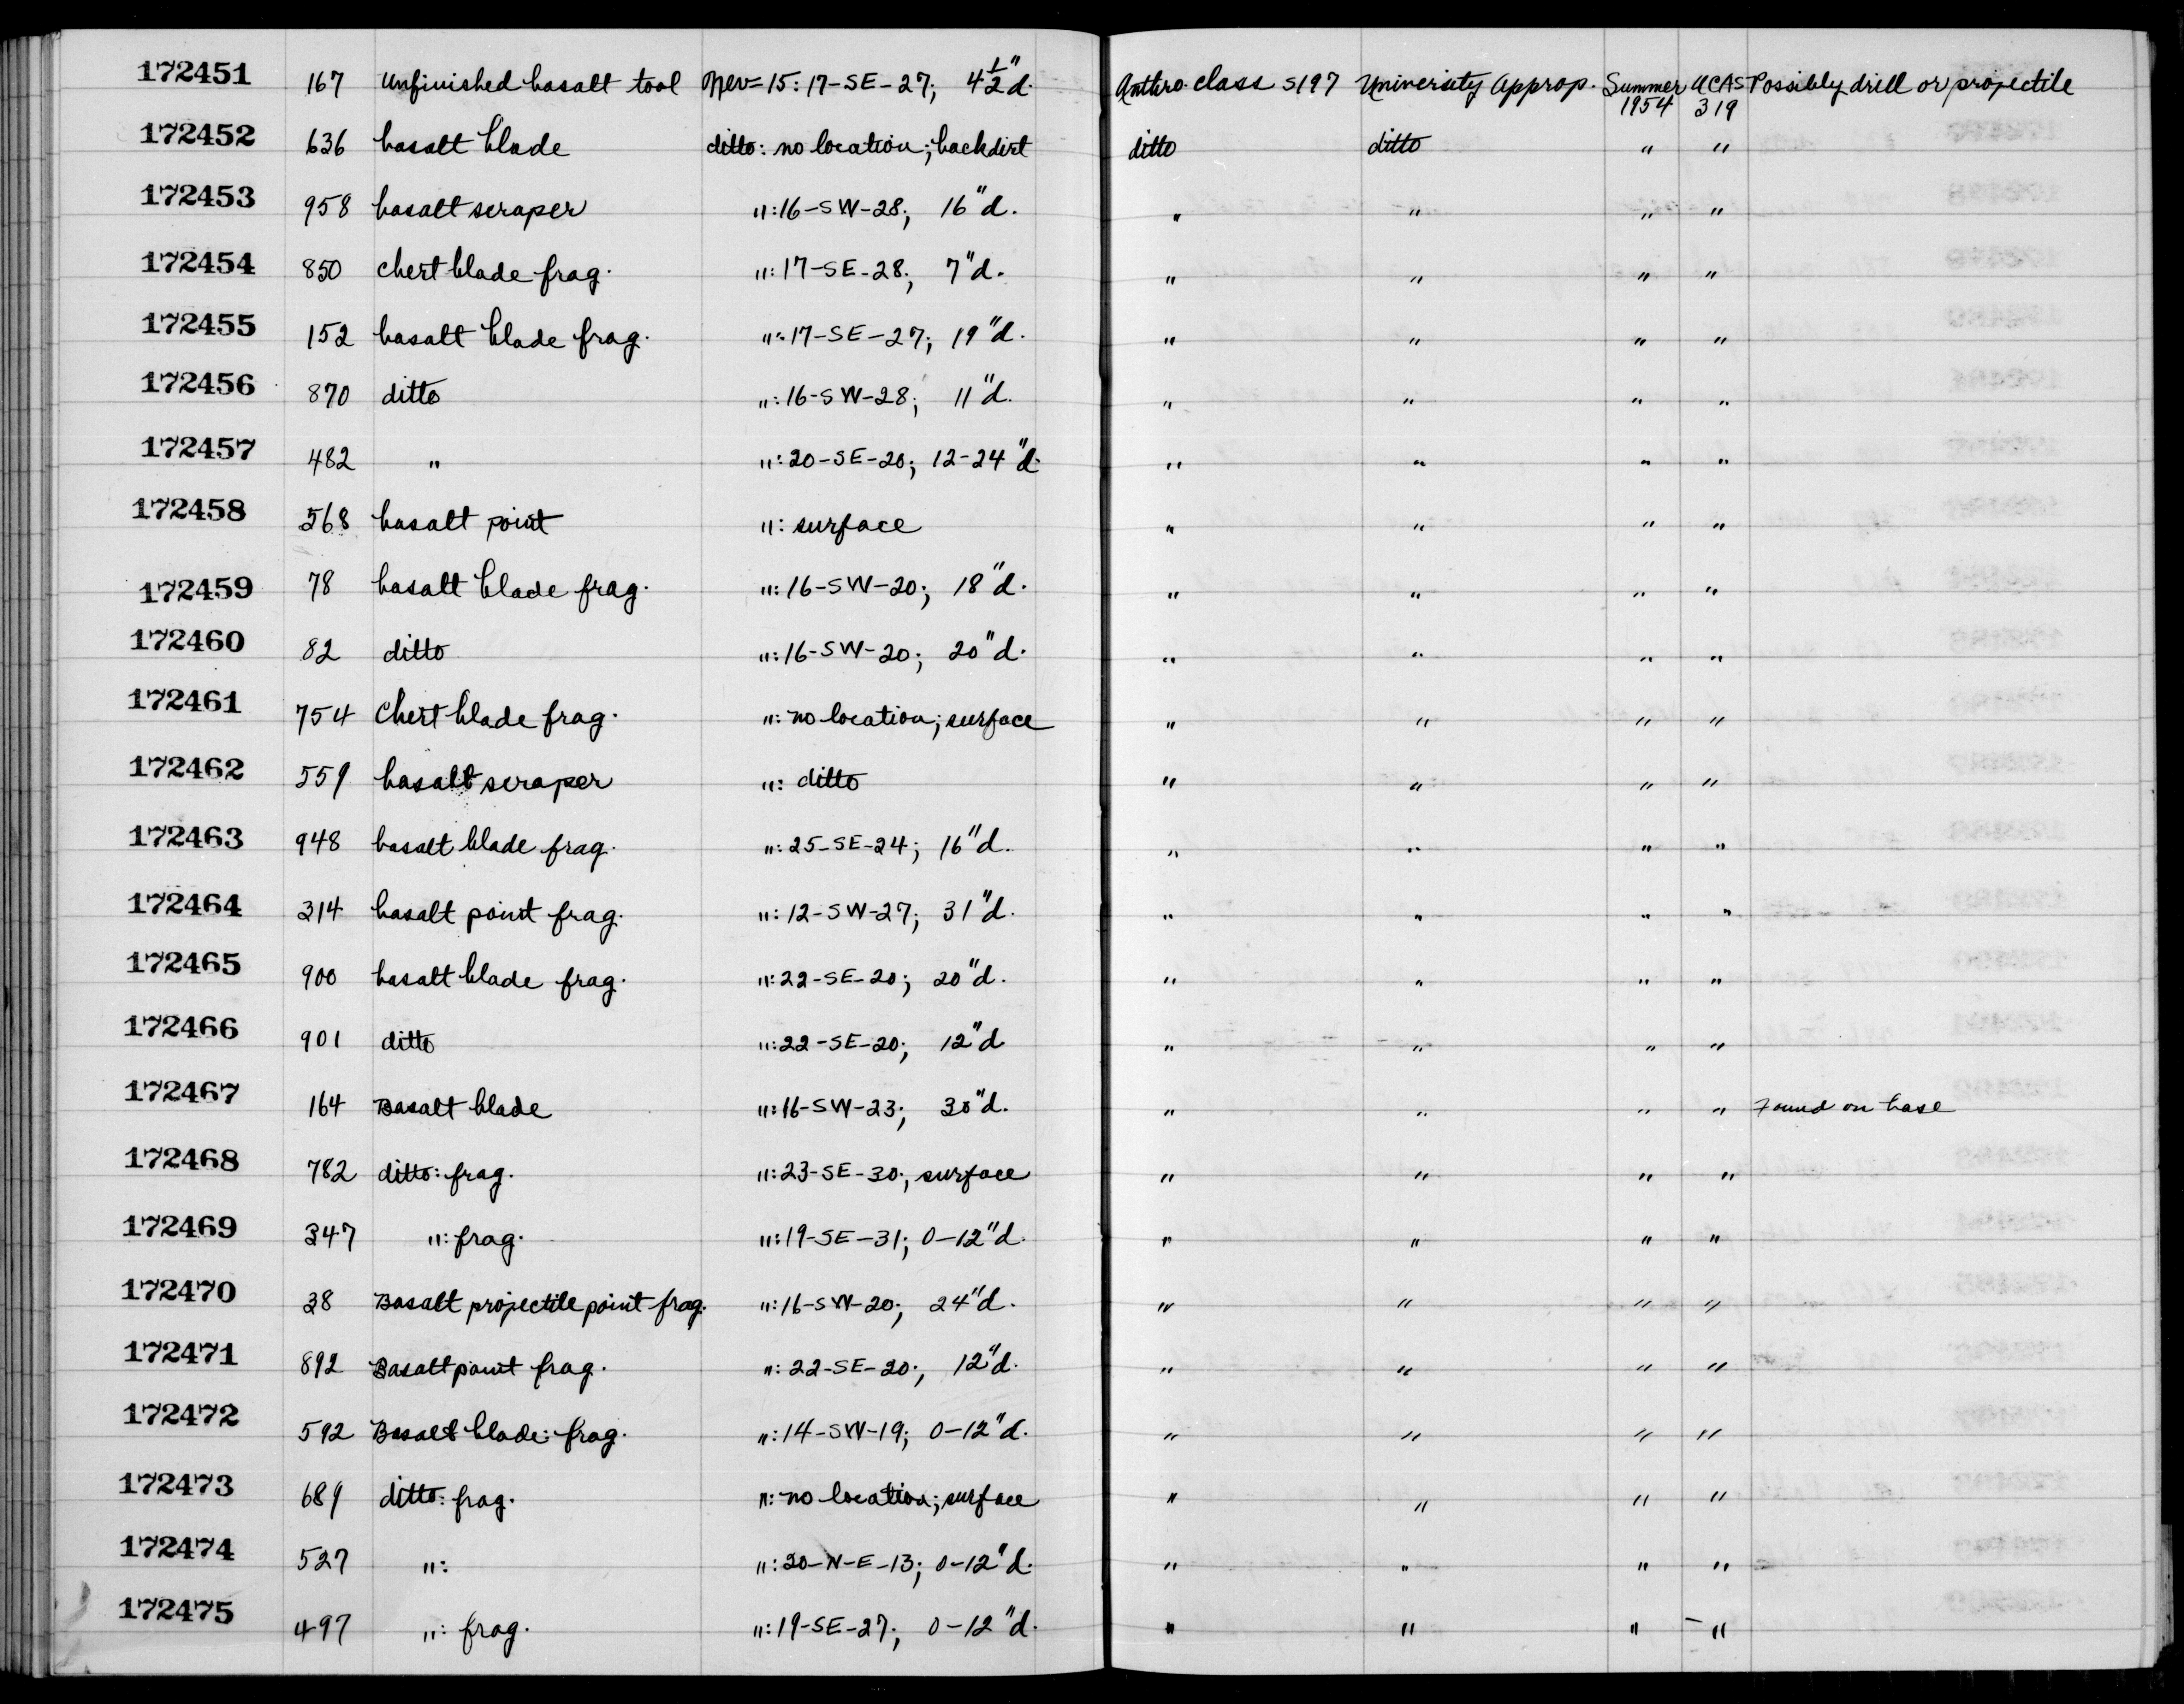 172451 167 Unfinished basalt tool Nev=15: 17-SE-27; 4½"d. Anthro. class S197 University Approp. Summer 1954 UCAS 319 Possibly drill or projectile
172452 636 basalt blade ditto: no location; backdirt ditto ditto " "
172453 958 basalt scraper ": 16-SW-28; 16"d. " " " "
172454 850 chert blade frag. ": 17-SE-28; 7"d. " " " "
172455 152 basalt blade frag. ": 17-SE-27; 19"d. " " " "
172456 870 ditto ": 16-SW-28; 11"d. " " " "
172457 482 " ": 20-SE-20; 12-24"d. " " " "
172458 568 basalt point ": surface " " " "
172459 78 basalt blade frag. ": 16-SW-20; 18"d. " " " "
172460 82 ditto ": 16-SW-20; 20"d. " " " "
172461 754 Chert blade frag. ": no location; surface " " " "
172462 559 basalt scraper ": ditto " " " "
172463 948 basalt blade frag. ": 25-SE-24; 16"d. " " " "
172464 314 basalt point frag. ": 12-SW-27; 31"d. " " " "
172465 900 basalt blade frag. ": 22-SE-20; 20"d. " " " "
172466 901 ditto ": 22-SE-20; 12"d " " " "
172467 164 Basalt blade ": 16-SW-23; 30"d. " " " " Found on base
172468 782 ditto: frag. ": 23-SE-30; surface " " " "
172469 347 ": frag. ": 19-SE-31; 0-12"d. " " " "
172470 38 Basalt projectile point frag. ": 16-SW-20; 24"d. " " " "
172471 892 Basalt point frag. ": 22-SE-20; 12"d. " " " "
172472 592 Basalt blade: frag. ": 14-SW-19; 0-12"d. " " " "
172473 689 ditto: frag. ": no location; surface " " " "
172474 527 ": ": 20-N-E-13; 0-12"d. " " " "
172475 497 ": frag. ": 19-SE-27; 0-12"d. " " " "